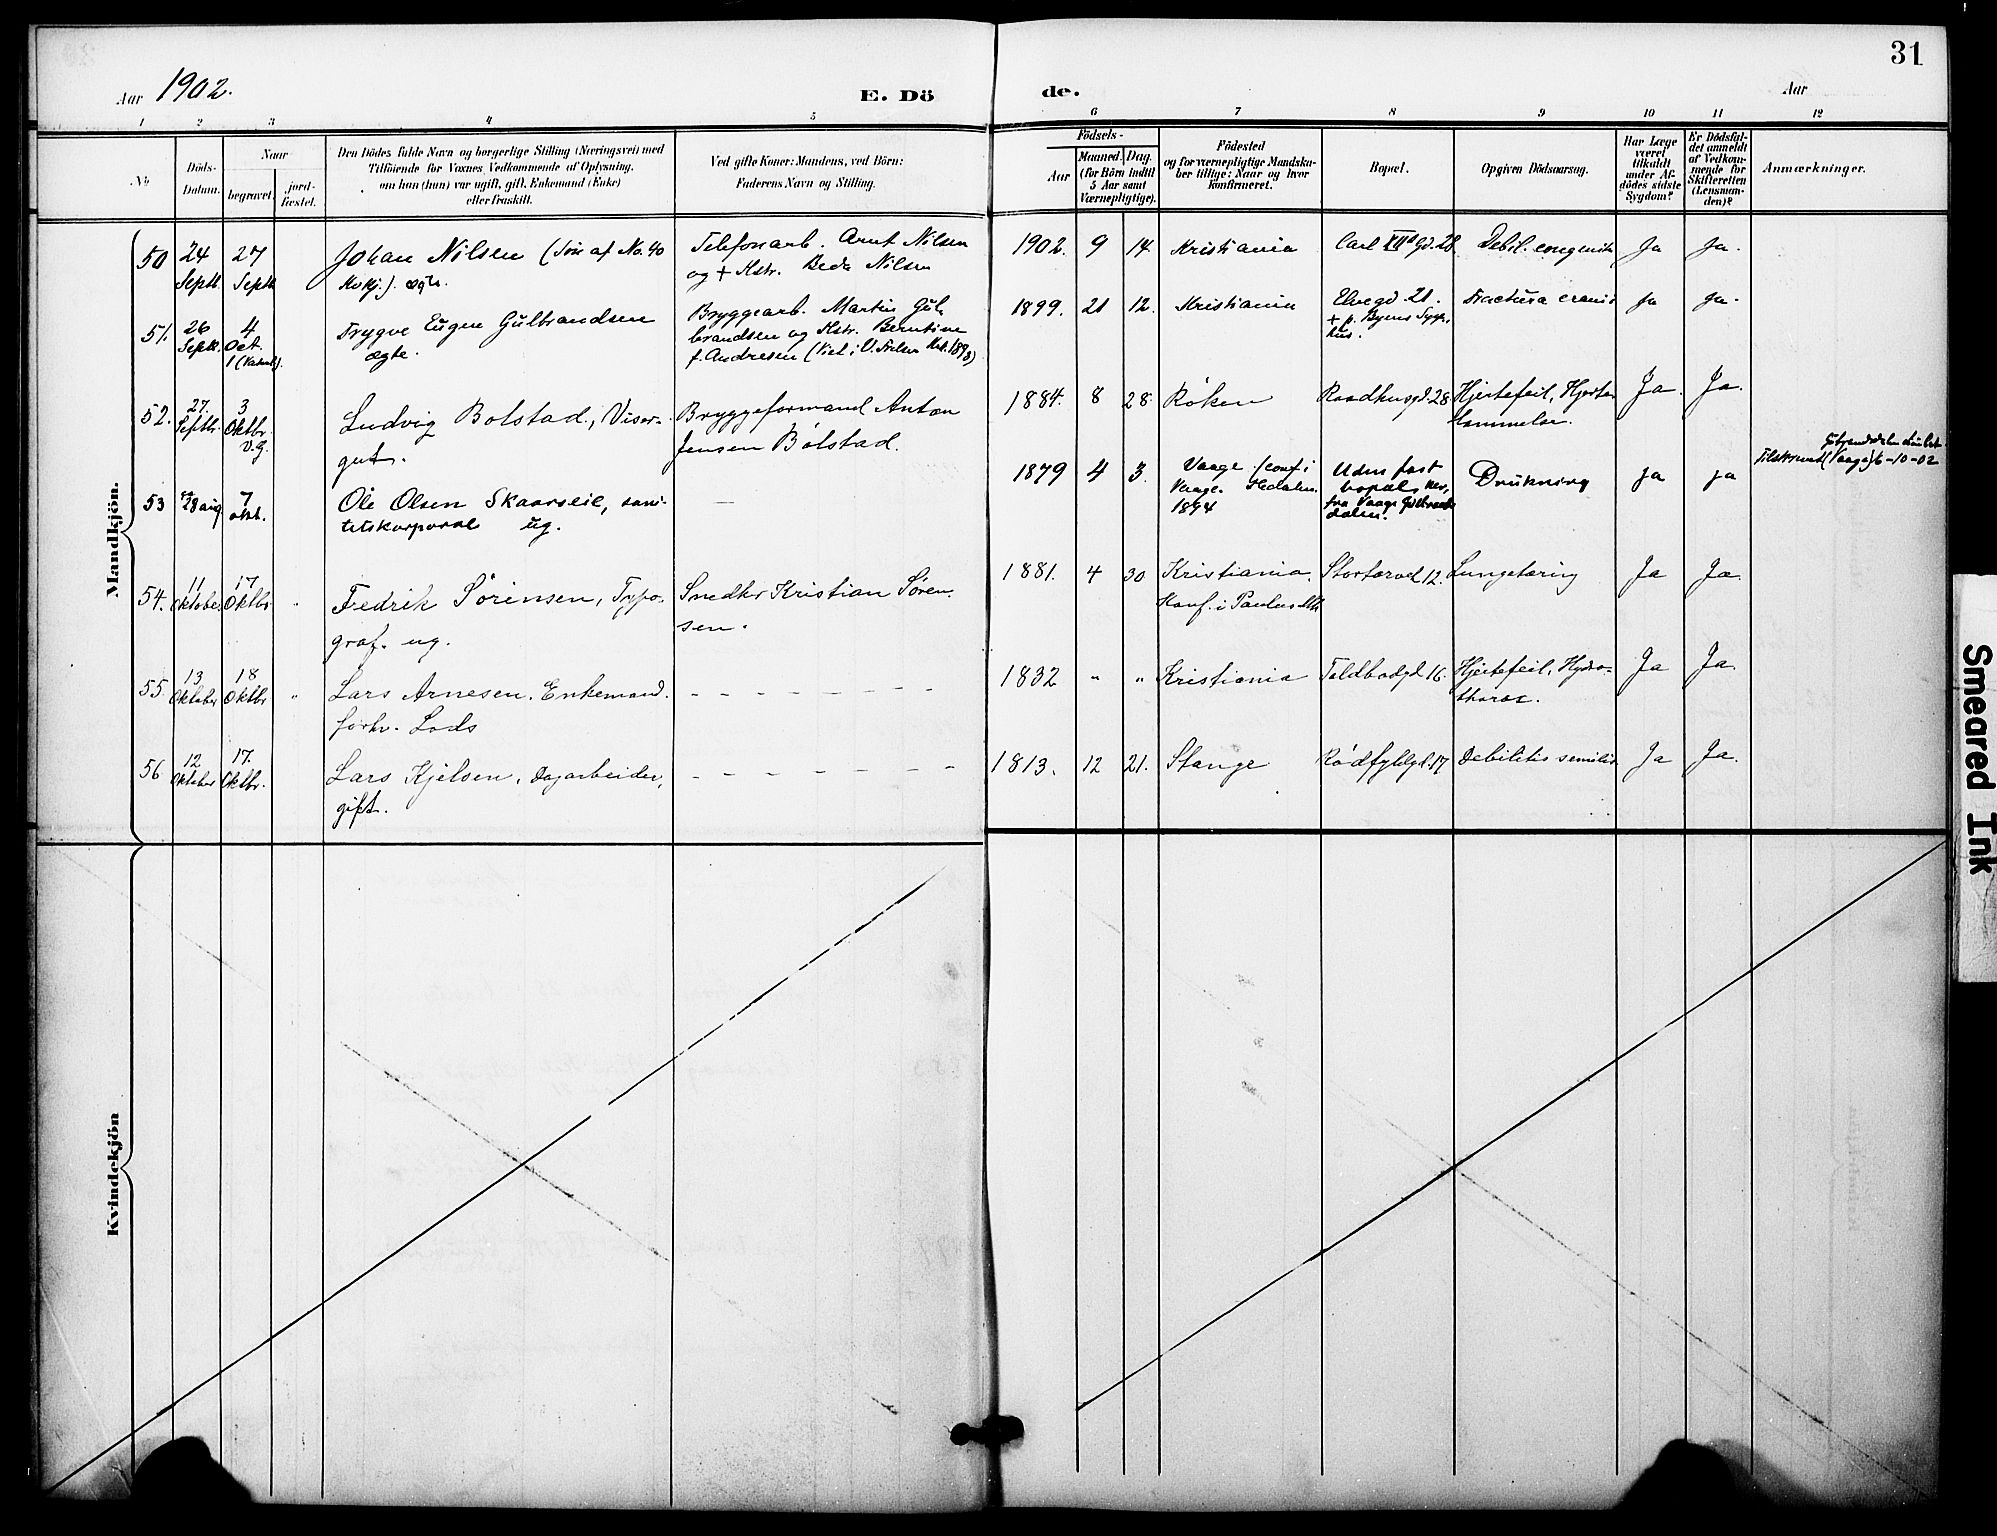 31
Aar 1902.
E. Dö
de.
Aar
1 2 3 4 5
6 7 8 9 10 11 12
No.
Döds-
Datum.
Naar
begravet.
jord-
fæstet.
Den Dödes fulde Navn og borgerlige Stilling (Næringsvei) med
Tilföiende for Voxnes Vedkommende af Oplysning,
om han (hun) var ugift, gift, Enkemand (Enke)
eller fraskilt.
Ved gifte Koner: Mandens, ved Börn:
Faderens Navn og Stilling.
Födsels-
Aar
Maaned.
Dag.
(for Börn indtil
5 Aar samt
Værnepligtige).
Födested
og for værnepligtige Mandska-
ber tillige: Naar og hvor
Konfirmeret.
Bopæl.
Opgiven Dödsaarsag.
Har Læge
været
tilkaldt
under Af-
dödes sidste
Sygdom?
Er Dödsfal-
det anmeldt
af Vedkom-
mende for
Skifteretten
(Lensman-
den)?
Anmærkninger.
Mandkjön.
50
24
Septb.
27
Septb
Johan Nilsen (Søn af No. 40
Kvkj.). ægte.
Telefonarb. Arnt Nilsen
og + Hstr. Beda Nilsen
1902. 9 14.
Kristiania
Carl XII's Gd. 28
Debil. congenita
Ja
Ja.
51.
26
Septb.
4
Oct.
Trygve Eugen Gulbrandsen
ægte.
Bryggearb. Martin Gul-
brandsen og Hstr. Berntine
f. Andresen (Viet i V. Frelser Krk. 1898)
1899. 21 12.
Kristiania
Elvegd. 21.
+ p. Byens Syge-
hus.
Fractura cranii
Ja
Ja.
52.
27.
Septbr.
3
Oktbr.
V.G.
Ludvig Bolstad, Viser-
gut.
Bryggeformand Anton
Jensen Bolstad.
1884. 8 28.
Røken
Raadhusgd. 28
Hjertefeil, Hjerte-
Ja.
Ja.
53
28 aug
7
oktb.
Ole Olsen Skaarseie, sani-
tetskorporal ug.
—
1879 4 3.
Vaage (conf i
Vaage. Hedalen.
1894
Uden fast
bopæl. her,
fra Vaage Gudbrands-
dalen.
Drukning
ja
ja
(Vaage) 6-10-02
54.
11
Oktober
17
Oktbr
"
Fredrik Sørensen, Typo-
graf. ug.
Snedker Kristian Søren-
sen.
1881. 4 30
Kristiania.
Konf. i Paulus
Stortorvet 12.
Lungetæring
Ja
Ja.
55.
13
Oktober
18
Oktbr
"
Lars Arnesen. Enkemand.
forhv. Lods
- - - - - - - -
1832 " "
Kristiania
Toldbodgd 16.
Hjertefeil, Hydro-
thorax.
Ja
Ja.
56
12
Oktober
17.
Oktbr.
Lars Kjelsen, Dagarbeider,
gift.
- - - - - - - -
1813. 12 21.
Stange
Rødfyldgd. 17
Debilitis senilis
Ja
Ja.
Kvindekjön
Smeared Ink